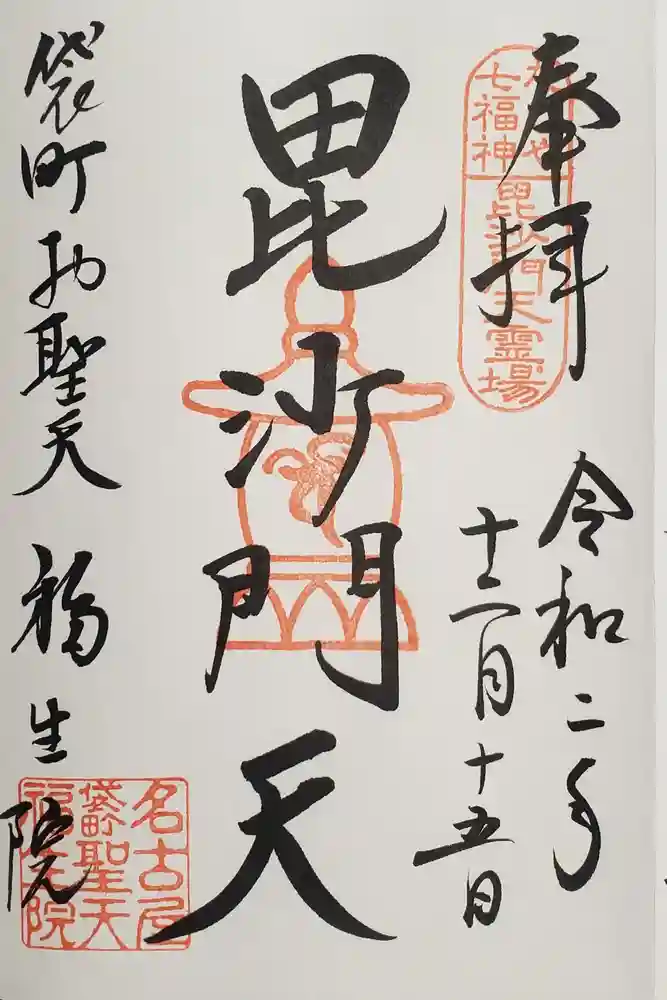 奉拝
なごや
七福神
毘沙門天霊場
令和二年
十二月十五日
毘沙門天
袋町お聖天 福生院
名古屋
袋町聖天
福生院